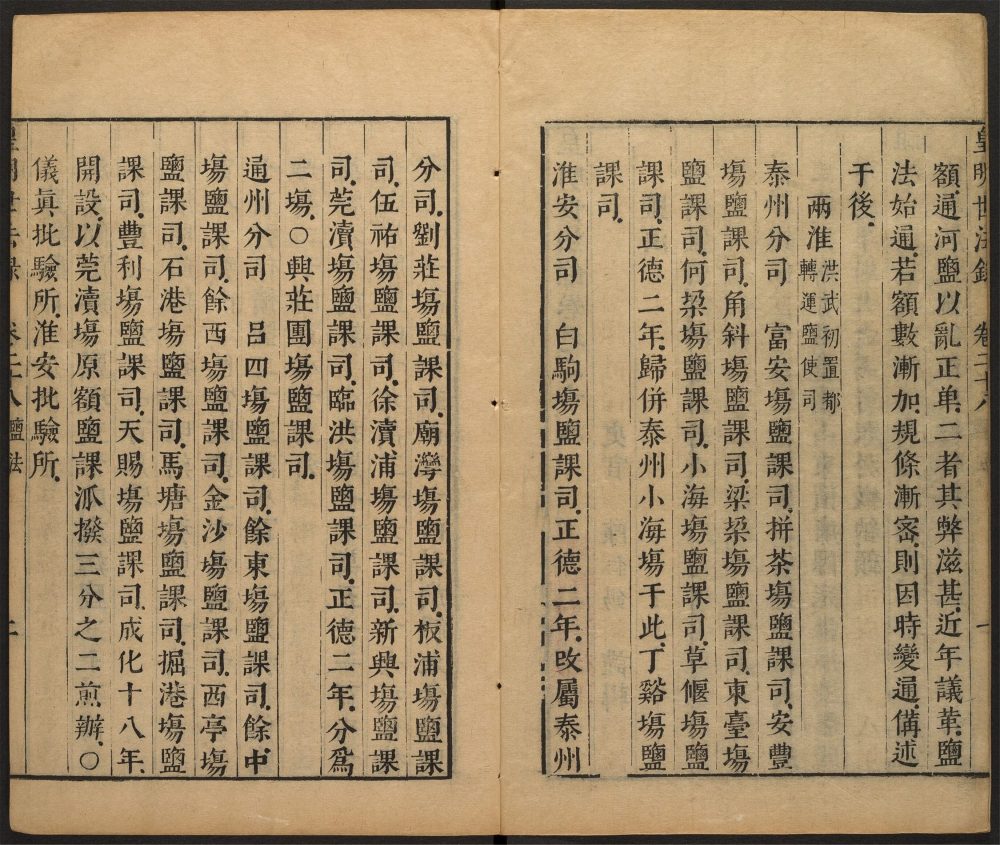 皇明世法錄 卷二十八 一
額通河鹽以亂正单二者其弊滋甚近年議革鹽
法始通若額數漸加規條漸密則因時變通備述
于後
兩淮洪武初置都轉運鹽使司
泰州分司 富安塲鹽課司拼茶塲鹽課司安豐
塲鹽課司角斜塲鹽課司梁垜塲鹽課司東臺塲
鹽課司何垜塲鹽課司小海塲鹽課司草偃塲鹽
課司正德二年歸併泰州小海塲于此丁谿塲鹽
課司
淮安分司 白駒塲鹽課司正德二年改屬泰州
分司劉莊塲鹽課司廟灣塲鹽課司板浦塲鹽課
司伍祐塲鹽課司徐瀆浦塲鹽課司新興塲鹽課
司莞瀆塲鹽課司臨洪塲鹽課司正德二年分爲
二塲○興莊團塲鹽課司
通州分司 呂四塲鹽課司餘東塲鹽課司餘中
塲鹽課司餘西塲鹽課司金沙塲鹽課司西亭塲
鹽課司石港塲鹽課司馬塘塲鹽課司掘港塲鹽
課司豐利塲鹽課司天賜塲鹽課司成化十八年
開設以莞瀆塲原額鹽課派撥三分之二煎辦○
儀眞批驗所淮安批驗所
皇明世法錄 卷二十八 鹽法 二